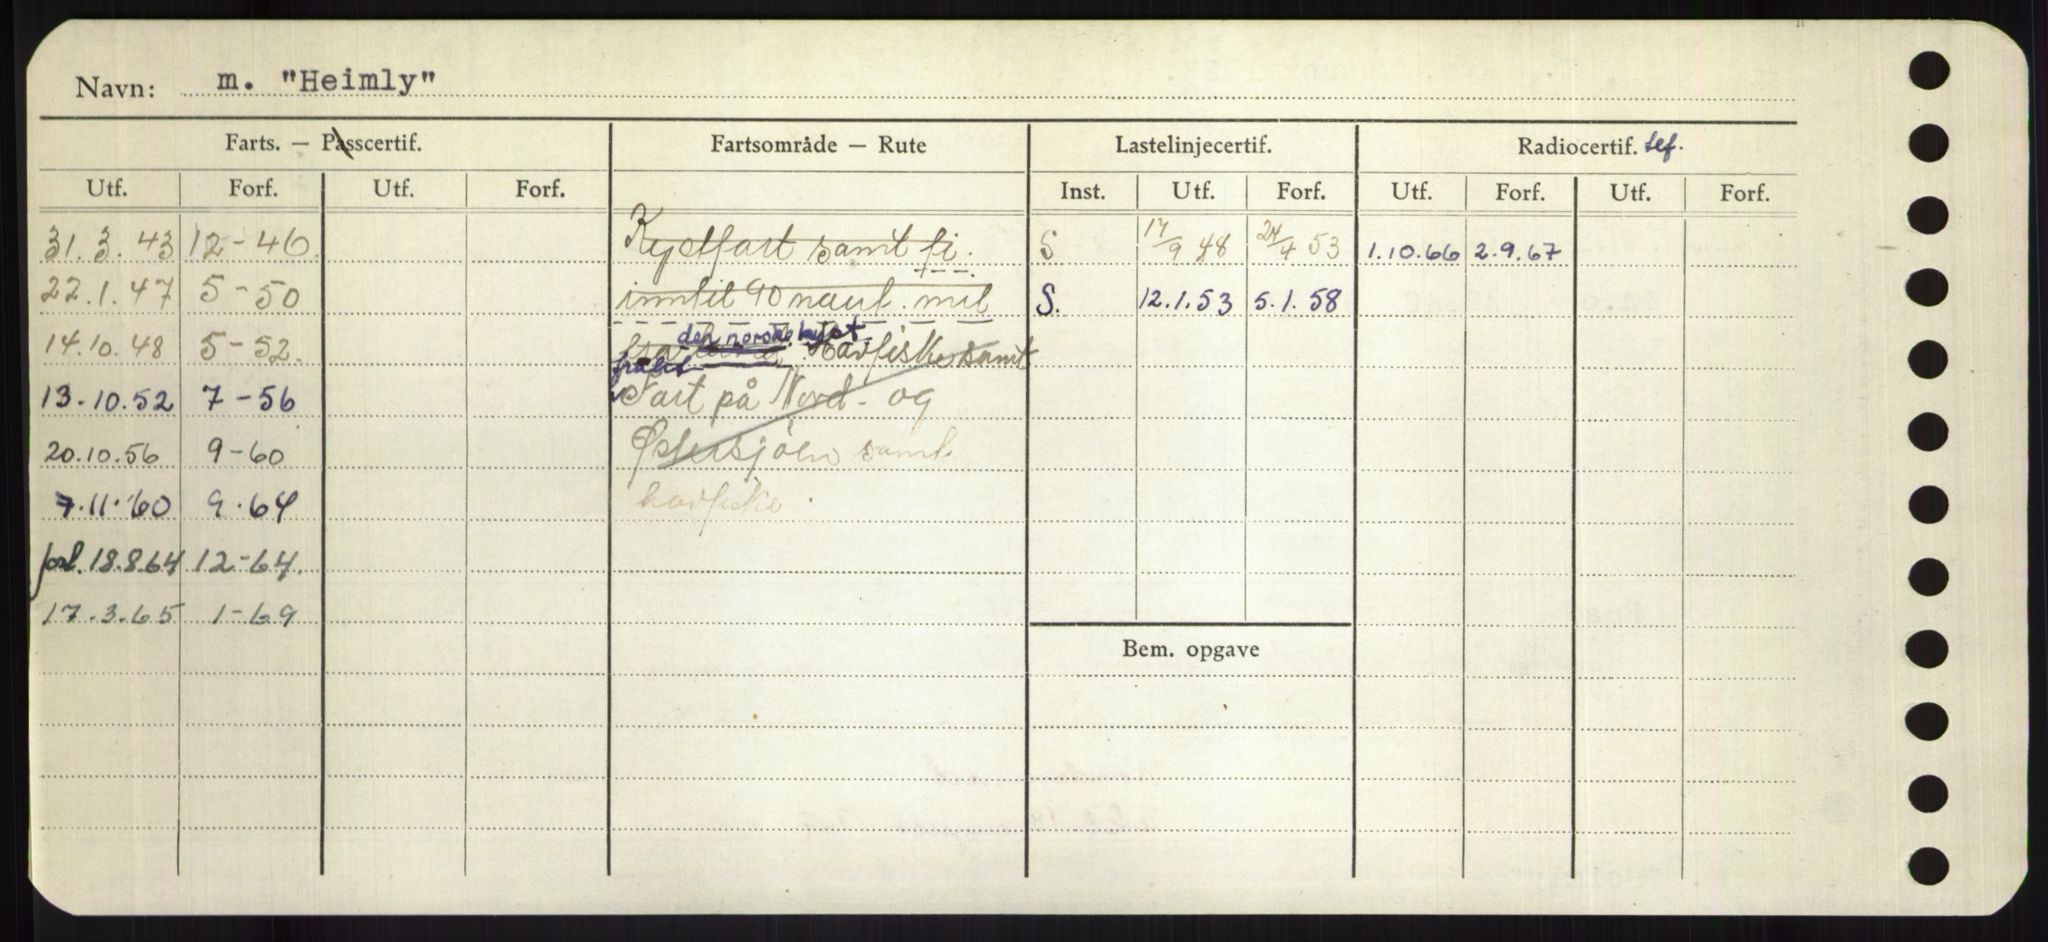 Navn: m. "Heimly"
Farts. — Passcertif. Fartsområde — Rute Lastelinjecertif. Radiocertif. tef.
Utf. Forf. Utf. Forf. Inst. Utf. Forf. Utf. Forf. Utf. Forf.
31.3.43 12-46. Kystfart samt fi. S 17/9 48 24/4 53 1.10.66 2.9.67
22.1.47 5-50 inntil 90 naut. mil S. 12.1.53 5.1.58
den norske kyst
14.10.48 5-52. fra Havfiske samt
13.10.52 7-56 Fart på Nord- og
20.10.56 9-60 Østersjøen samt
7.11.60 9.64 havfiske.
forl. 18.8.64 12-64.
17.3.65 1-69
Bem. opgave